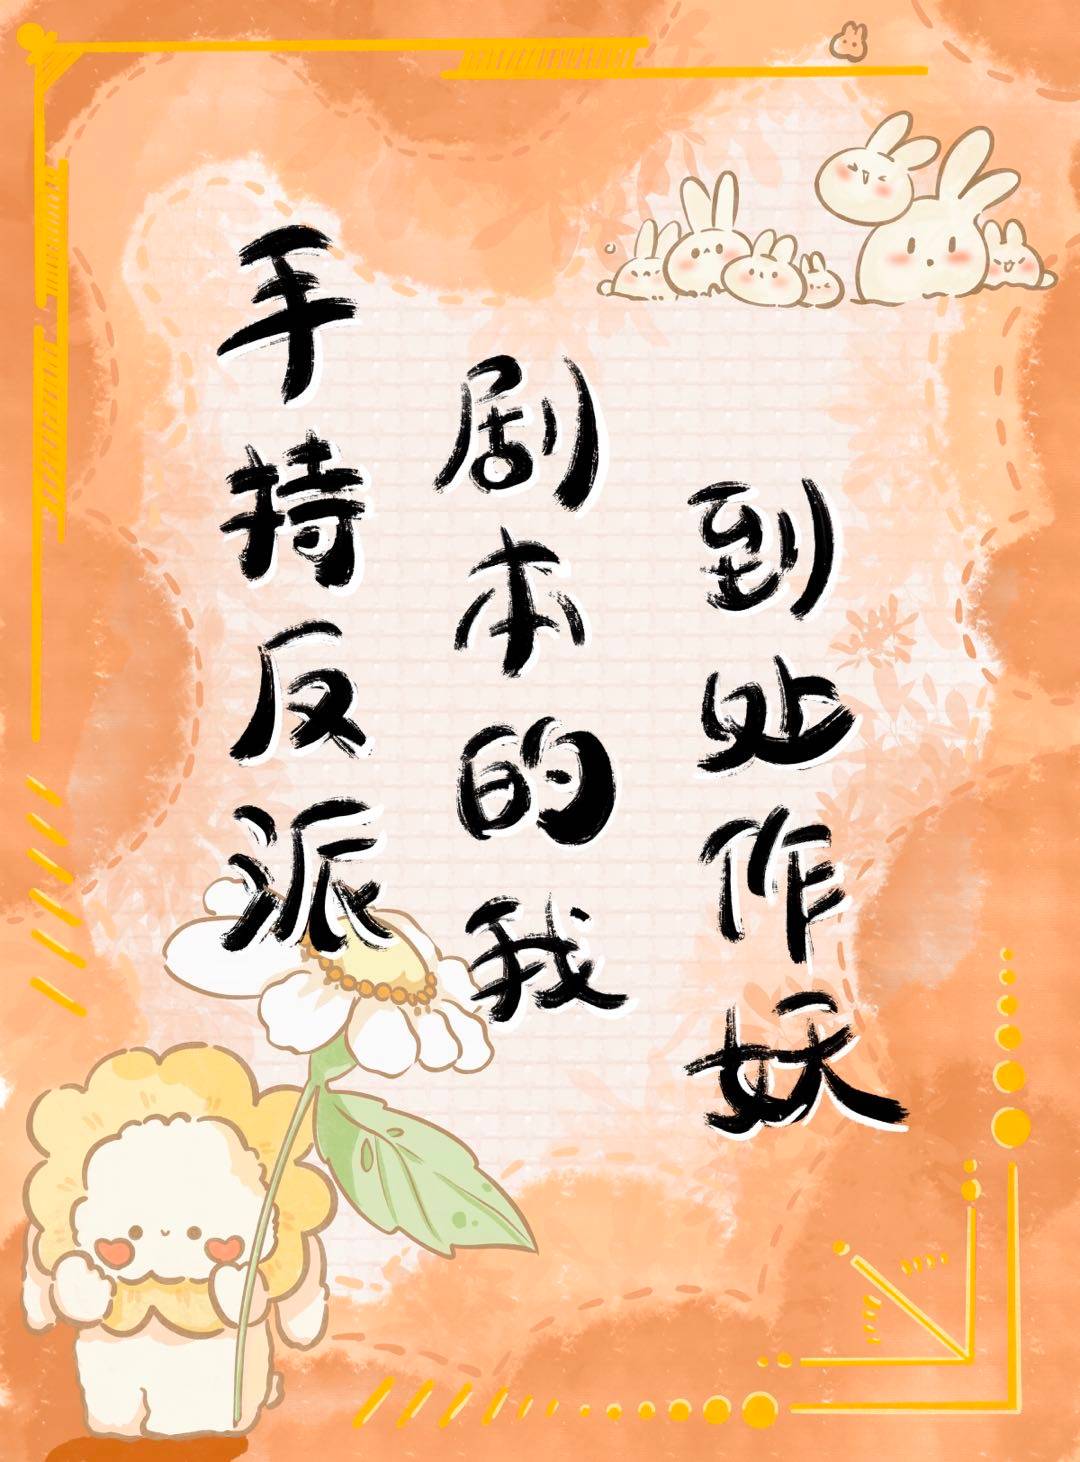 手持反派
剧本的我
到处作妖